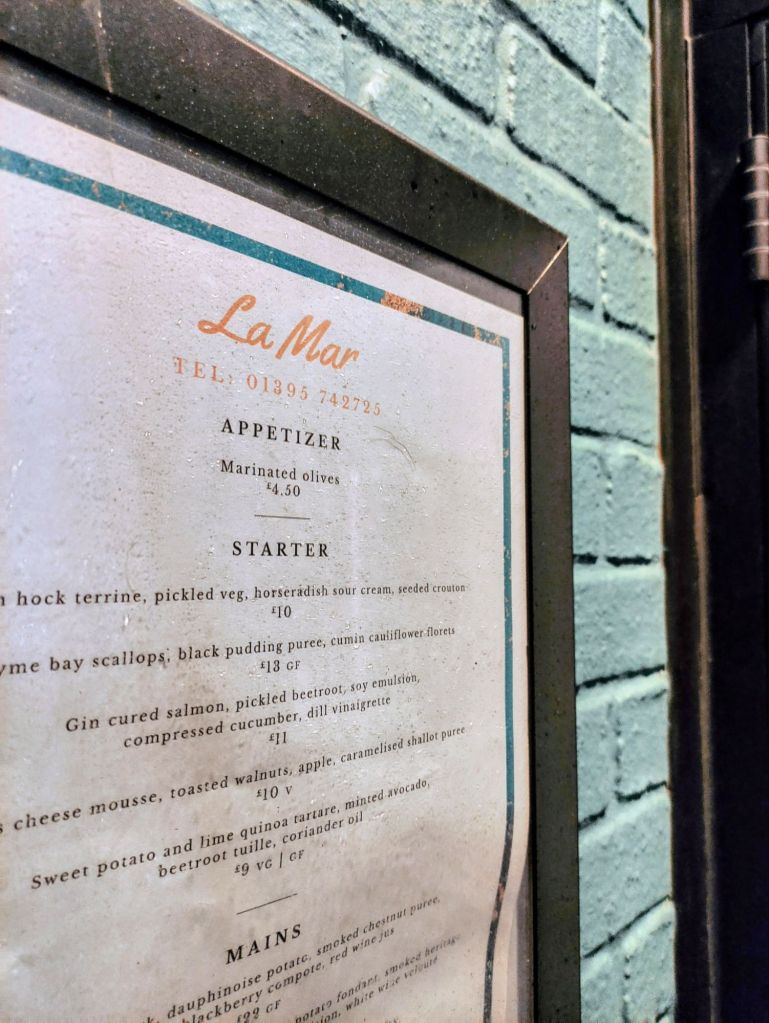 La Mar
TEL: 01395 742725
APPETIZER
Marinated olives
£4.50
STARTER
hock terrine, pickled veg, horseradish sour cream, seeded crouton
£10
bay scallops, black pudding puree, cumin cauliflower florets
£13 GF
Gin cured salmon, pickled beetroot, soy emulsion,
compressed cucumber, dill vinaigrette
£11
cheese mousse, toasted walnuts, apple, caramelised shallot puree
£10 V
Sweet potato and lime quinoa tartare, minted avocado,
beetroot tuille, coriander oil
£9 VG | GF
MAINS
dauphinoise potato, smoked chestnut puree,
blackberry compote, red wine jus
£22 GF
potato fondant, smoked heritage
white wine veloute